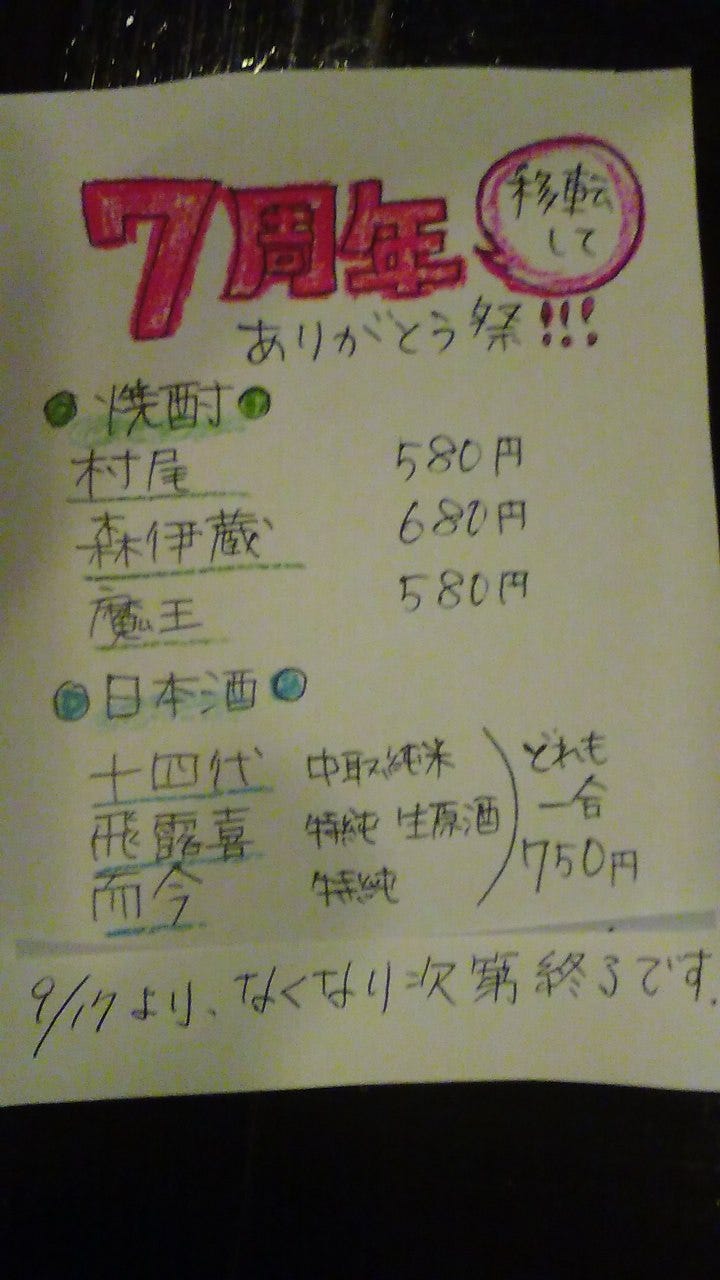 移転して
7周年
ありがとう祭!!!
焼酎
村尾 580円
森伊蔵 680円
魔王 580円
日本酒
十四代 中取純米
飛露喜 特純 生原酒
而今 特純
どれも
一合
750円
9/17より、なくなり次第終了です.